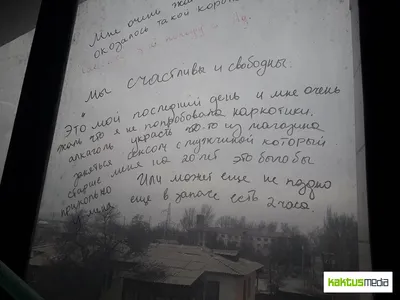 Мне очень жаль
оказалось такой коротк
Мы счастливы и свободны.
Это мой последний день и мне очень
жаль что я не попробовала наркотики.
алкоголь украсть что-то из магазина
заняться сексом с мужчиной который
старше меня на 20 лет это было бы
прикольно Или может еще не поздно
еще в запасе есть 2 часа.
kaktusmedia